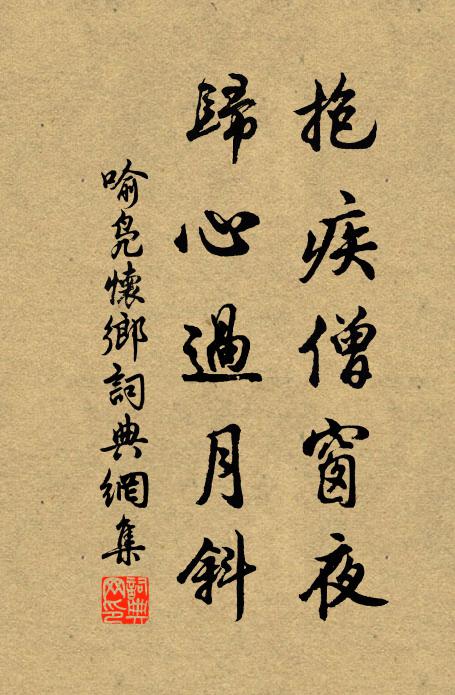 抱疾僧窗夜
歸心過月斜
喻凫懷鄉詞典網集
詞典網印